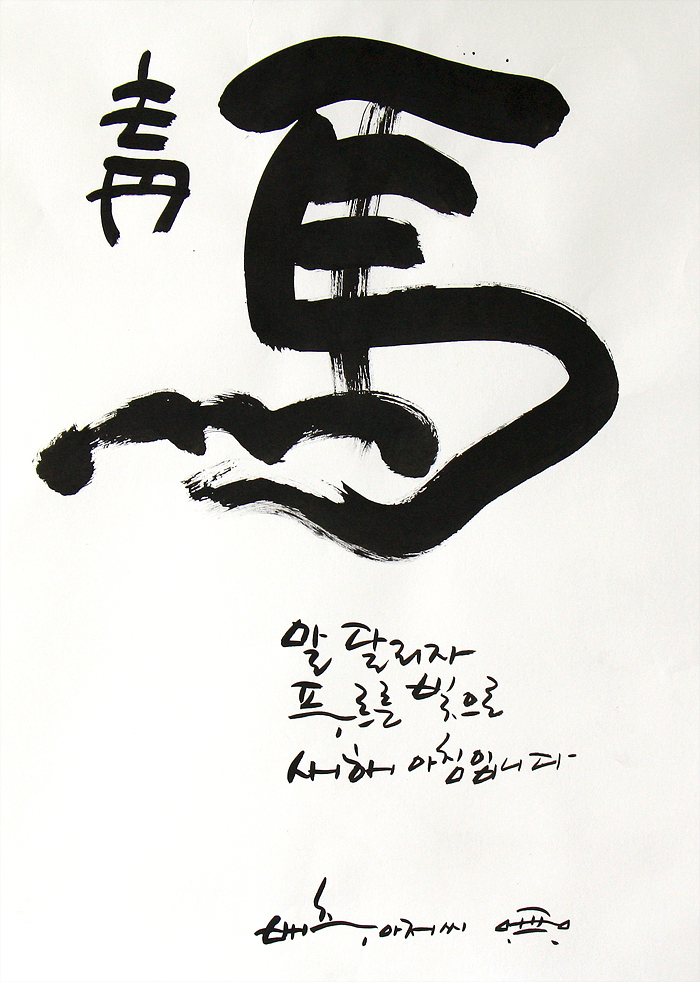 青 馬
말 달리자
푸르른 빛으로
새해 아침입니다
배추아저씨